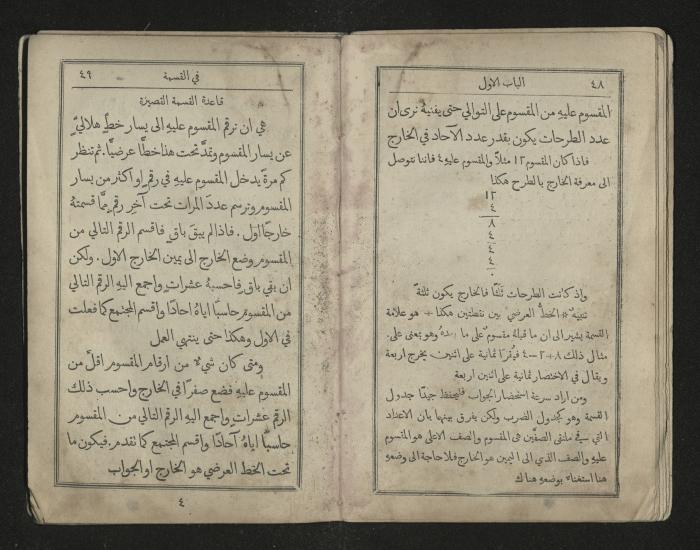 ٤٨ الباب الاول
المقسوم عليهِ من المقسوم على التوالي حتى يفنيهُ نرى ان
عدد الطرحات يكون بقدر عدد الآحاد في الخارج
فاذا كان المقسوم ١٢ مثلاً والمقسوم عليهِ ٤ فاننا نتوصل
الى معرفة الخارج بالطرح هكذا
١٢
٤
٨
٤
٤
٤
٠
واذ كانت الطرحات ثلثًا فالخارج يكون ثلثةً
تنبيه * الخط العرضي بين نقطتين هكذا ÷ هو علامة
القسمة يشير الى ان ما قبلهُ مقسومٌ على ما بعدهُ وهو بمعنى على.
مثال ذلك ٨÷٢=٤ فيُقرَأ ثمانية على اثنين يخرج اربعة
ويقال في الاختصار ثمانية على اثنين اربعة
ومن اراد سرعة استحضار الجواب فليحفظ جيدًا جدول
القسمة وهو كجدول الضرب ولكن يفرق بينها بان الاعداد
التي في ملتقى الصفَّين هي المقسوم والصف الاعلى هو المقسوم
عليهِ والصف الذي الى اليمين هو الخارج فلا حاجة الى وضعهِ
هنا استغناءً بوضعهِ هناك
في القسمة ٤٩
قاعدة القسمة القصيرة
هي ان نرقم المقسوم عليهِ الى يسار خطٍّ هلاليٍّ
عن يسار المقسوم ونمدَّ تحت هذا خطًّا عرضيًّا. ثم تنظر
كم مرةً يدخل المقسوم عليهِ في رقمٍ او اكثر من يسار
المقسوم ونرسم عدد المرات تحت آخِر رقمٍ ممَّا قسمتهُ
خارجًا اول. فاذا لم يبقَ باقٍ فاقسم الرقم التالي من
المقسوم وضع الخارج الى يمين الخارج الاول. ولكن
ان بقي باقٍ فاحسبهُ عشراتٍ واجمع اليهِ الرقم التالي
من المقسوم حاسبًا اياهُ احادًا واقسم المجتمع كما فعلت
في الاول وهكذا حتى ينتهي العمل
ومتى كان شيءٌ من ارقام المقسوم اقلَّ من
المقسوم عليهِ فضع صفرًا في الخارج واحسب ذلك
الرقم عشراتٍ واجمع اليهِ الرقم التالي من المقسوم
حاسبًا اياهُ آحادًا واقسم المجتمع كما تقدم. فيكون ما
تحت الخط العرضي هو الخارج او الجواب
٤